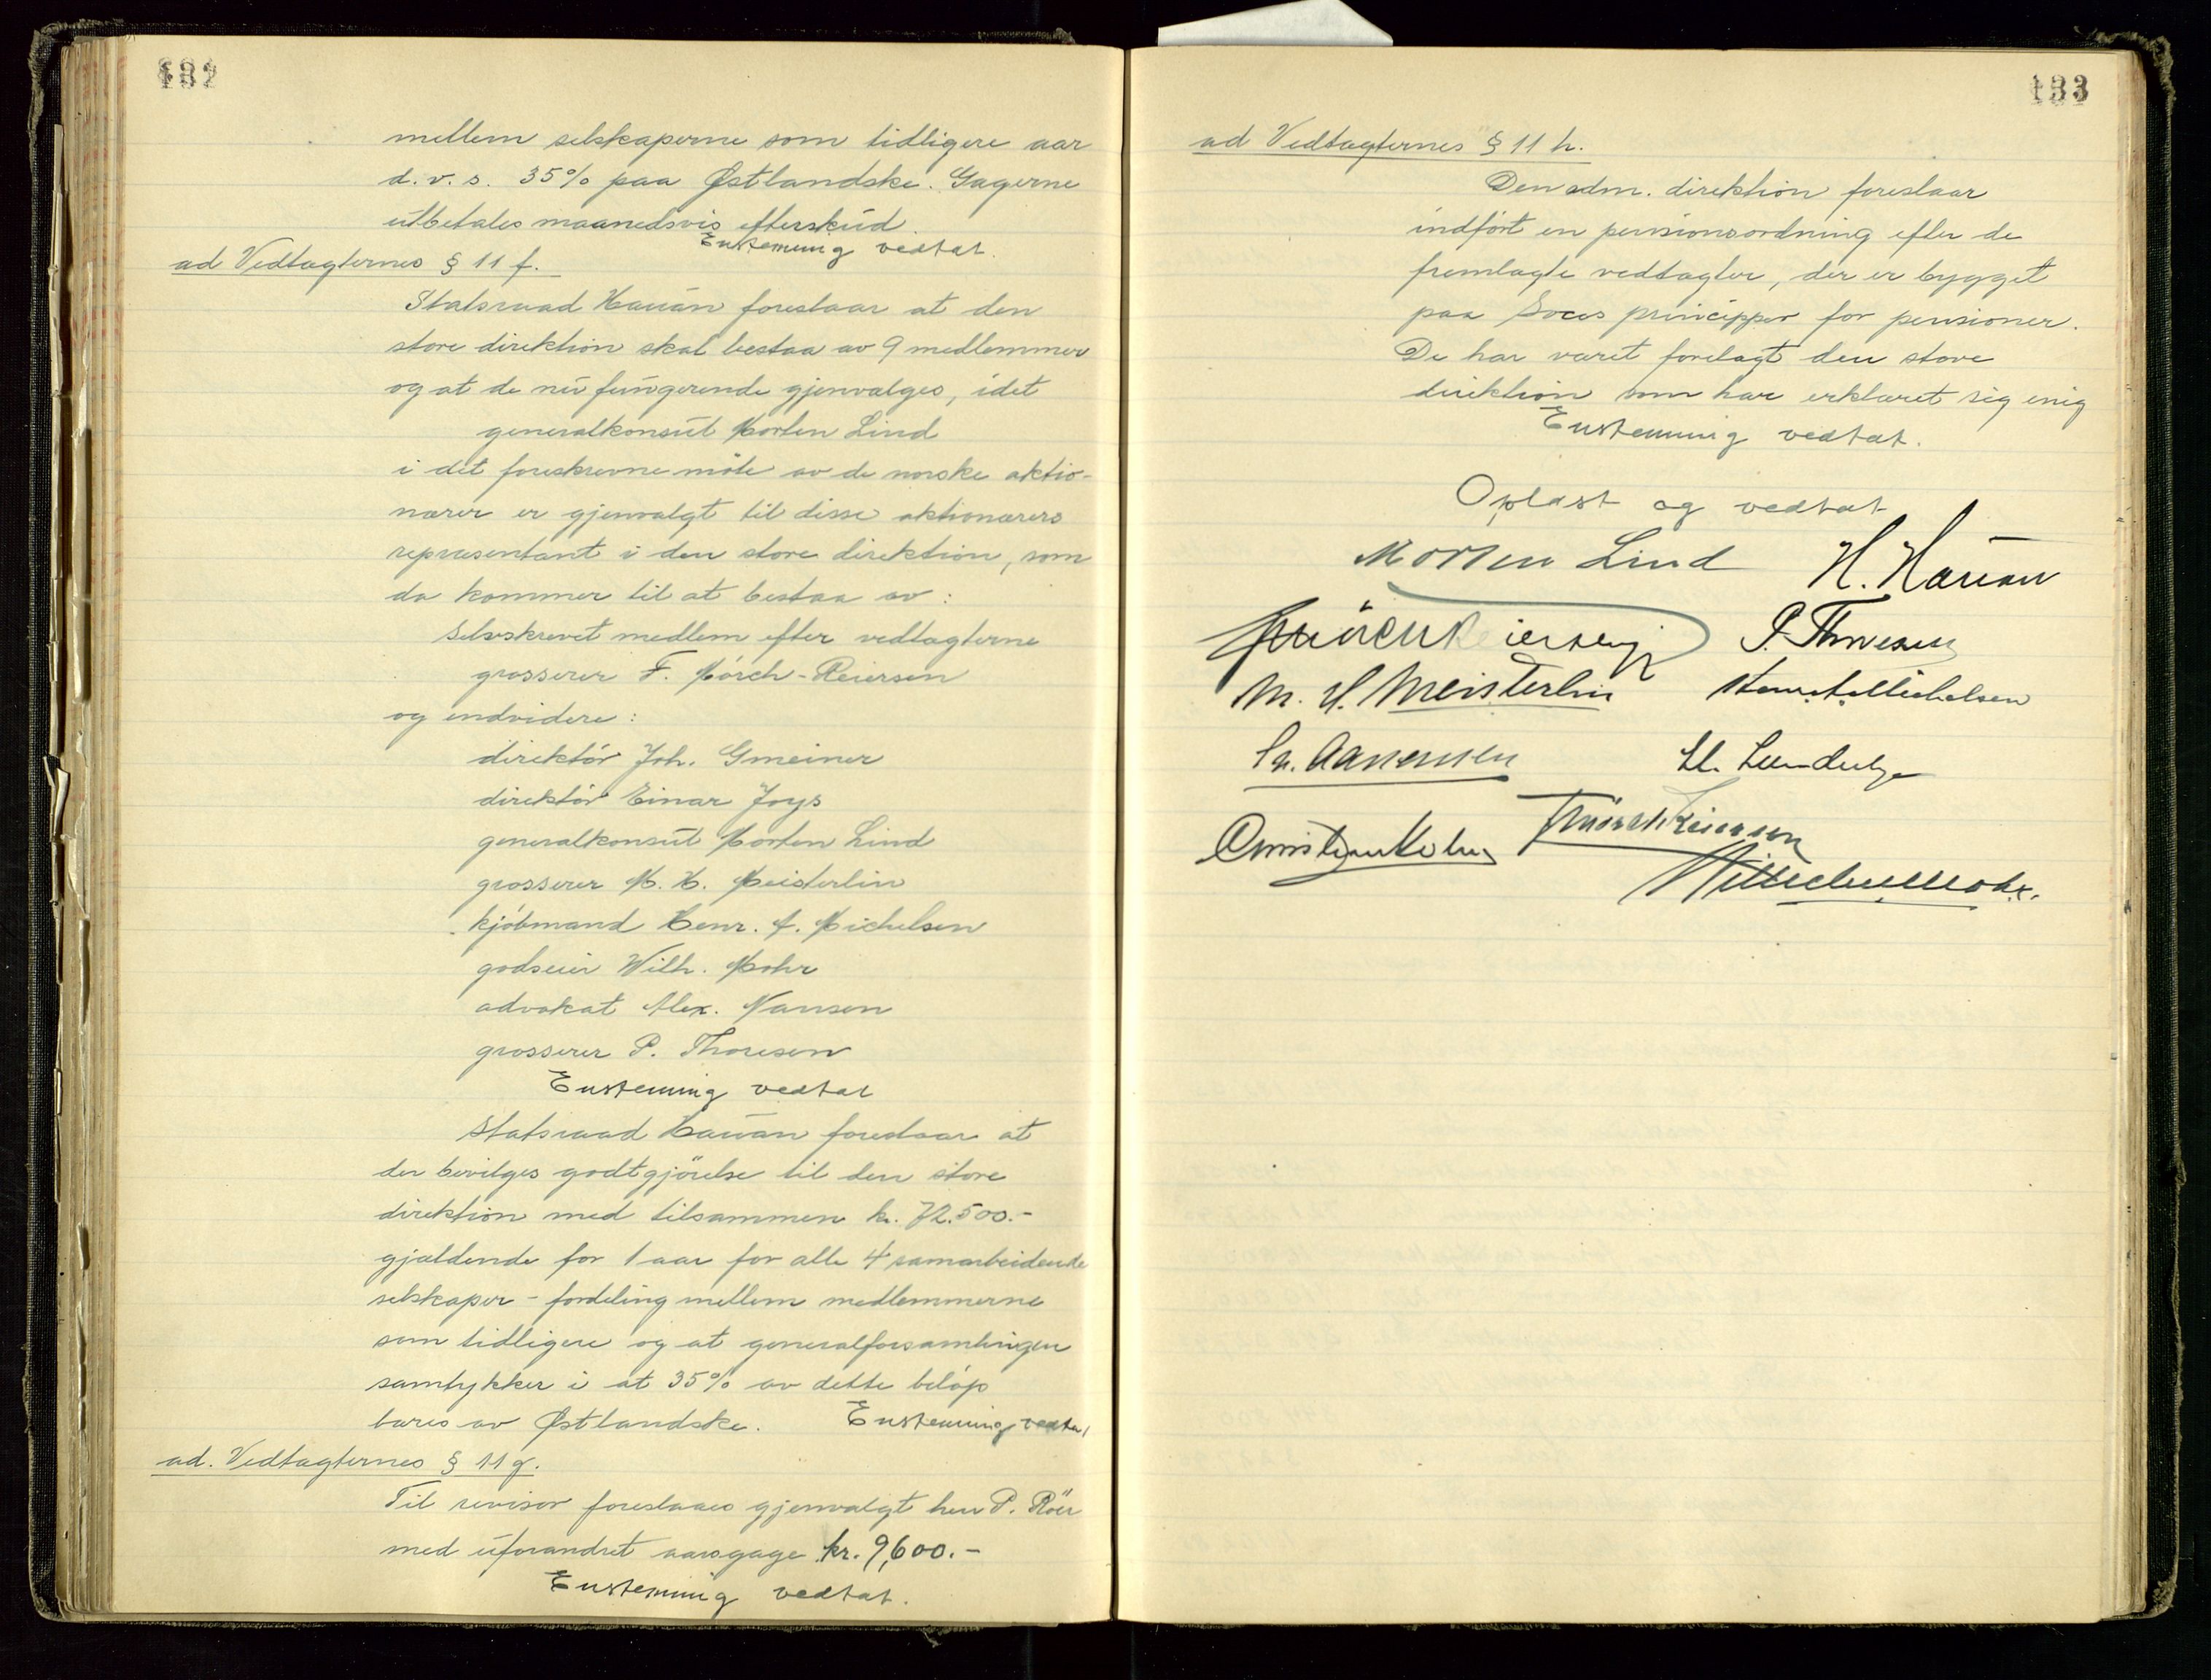 132
mellem selskaperne som tidligere aar
d.v.s. 35% paa Østlandske. Gagerne
utbetales maanedsvis efterskud.
Enstemmig vedtat.
ad Vedtagternes § 11 f.
Statsraad Hauan foreslaar at den
store direktion skal bestaa av 9 medlemmer
og at de nu fungerende gjenvalges, idet
generalkonsul Morten Lind
i det foreskrevne møte av de norske aktio-
nærer er gjenvalgt til disse aktionærers
repræsentant i den store direktion, som
da kommer til at bestaa av:
Selvskrevet medlem efter vedtagterne
grosserer F. Mørch-Reiersen
og endvidere:
direktør Joh. Gmeiner
direktør Einar Joys
generalkonsul Morten Lind
grosserer M. H. Meisterlin
kjøbmand Henr. A. Michelsen
godseier Wilh. Mohr
advokat Alex. Nansen
grosserer P. Thoresen
Enstemmig vedtat
Statsraad Hauan foreslaar at
der bevilges godtgjørelse til den store
direktion med tilsammen kr. 72.500.-
gjældende for 1 aar for alle 4 samarbeidende
selskaper - fordeling mellem medlemmerne
som tidligere og at generalforsamlingen
samtykker i at 35% av dette beløp
bæres av Østlandske. Enstemmig vedtat
ad. Vedtagternes § 11 g.
Til revisor foreslaaes gjenvalgt herr P. Röer
med uforandret aarsgage kr. 9,600.-
Enstemmig vedtat.
133
ad Vedtagternes § 11 h.
Den adm. direktion foreslaar
indført en pensionsordning efter de
fremlagte vedtagter, der er bygget
paa Soces principper for pensioner.
De har været forelagt den store
direktion som har erklæret sig enig
Enstemmig vedtat.
Oplæst og vedtat
Morten Lind H. Hauan
P. Thoresen
M. H. Meisterlin Henr. A. Michelsen
Chr. Aanensen
F Mørch Reiersen
Wilhelm Mohr.